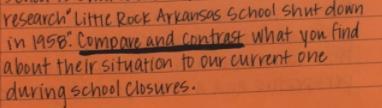 research" Little Rock Arkansas School shut down
in 1958". Compare and contrast what you find
about their situation to our current one
during school closures.